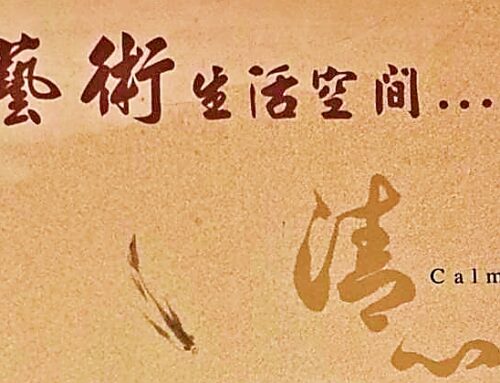 藝術生活空间...
清心
Calm